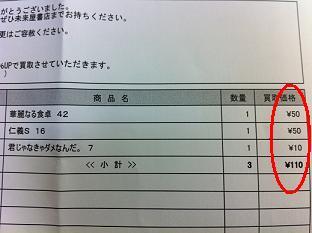 がとうございました。
ぜひ未来屋書店までお持ちください。
更はご容赦ください。
%UPで買取させていただきます。
)
商品名 数量 買取価格
華麗なる食卓 42 1 ¥50
仁義S 16 1 ¥50
君じゃなきゃダメなんだ。 7 1 ¥10
<< 小 計 >> 3 ¥110